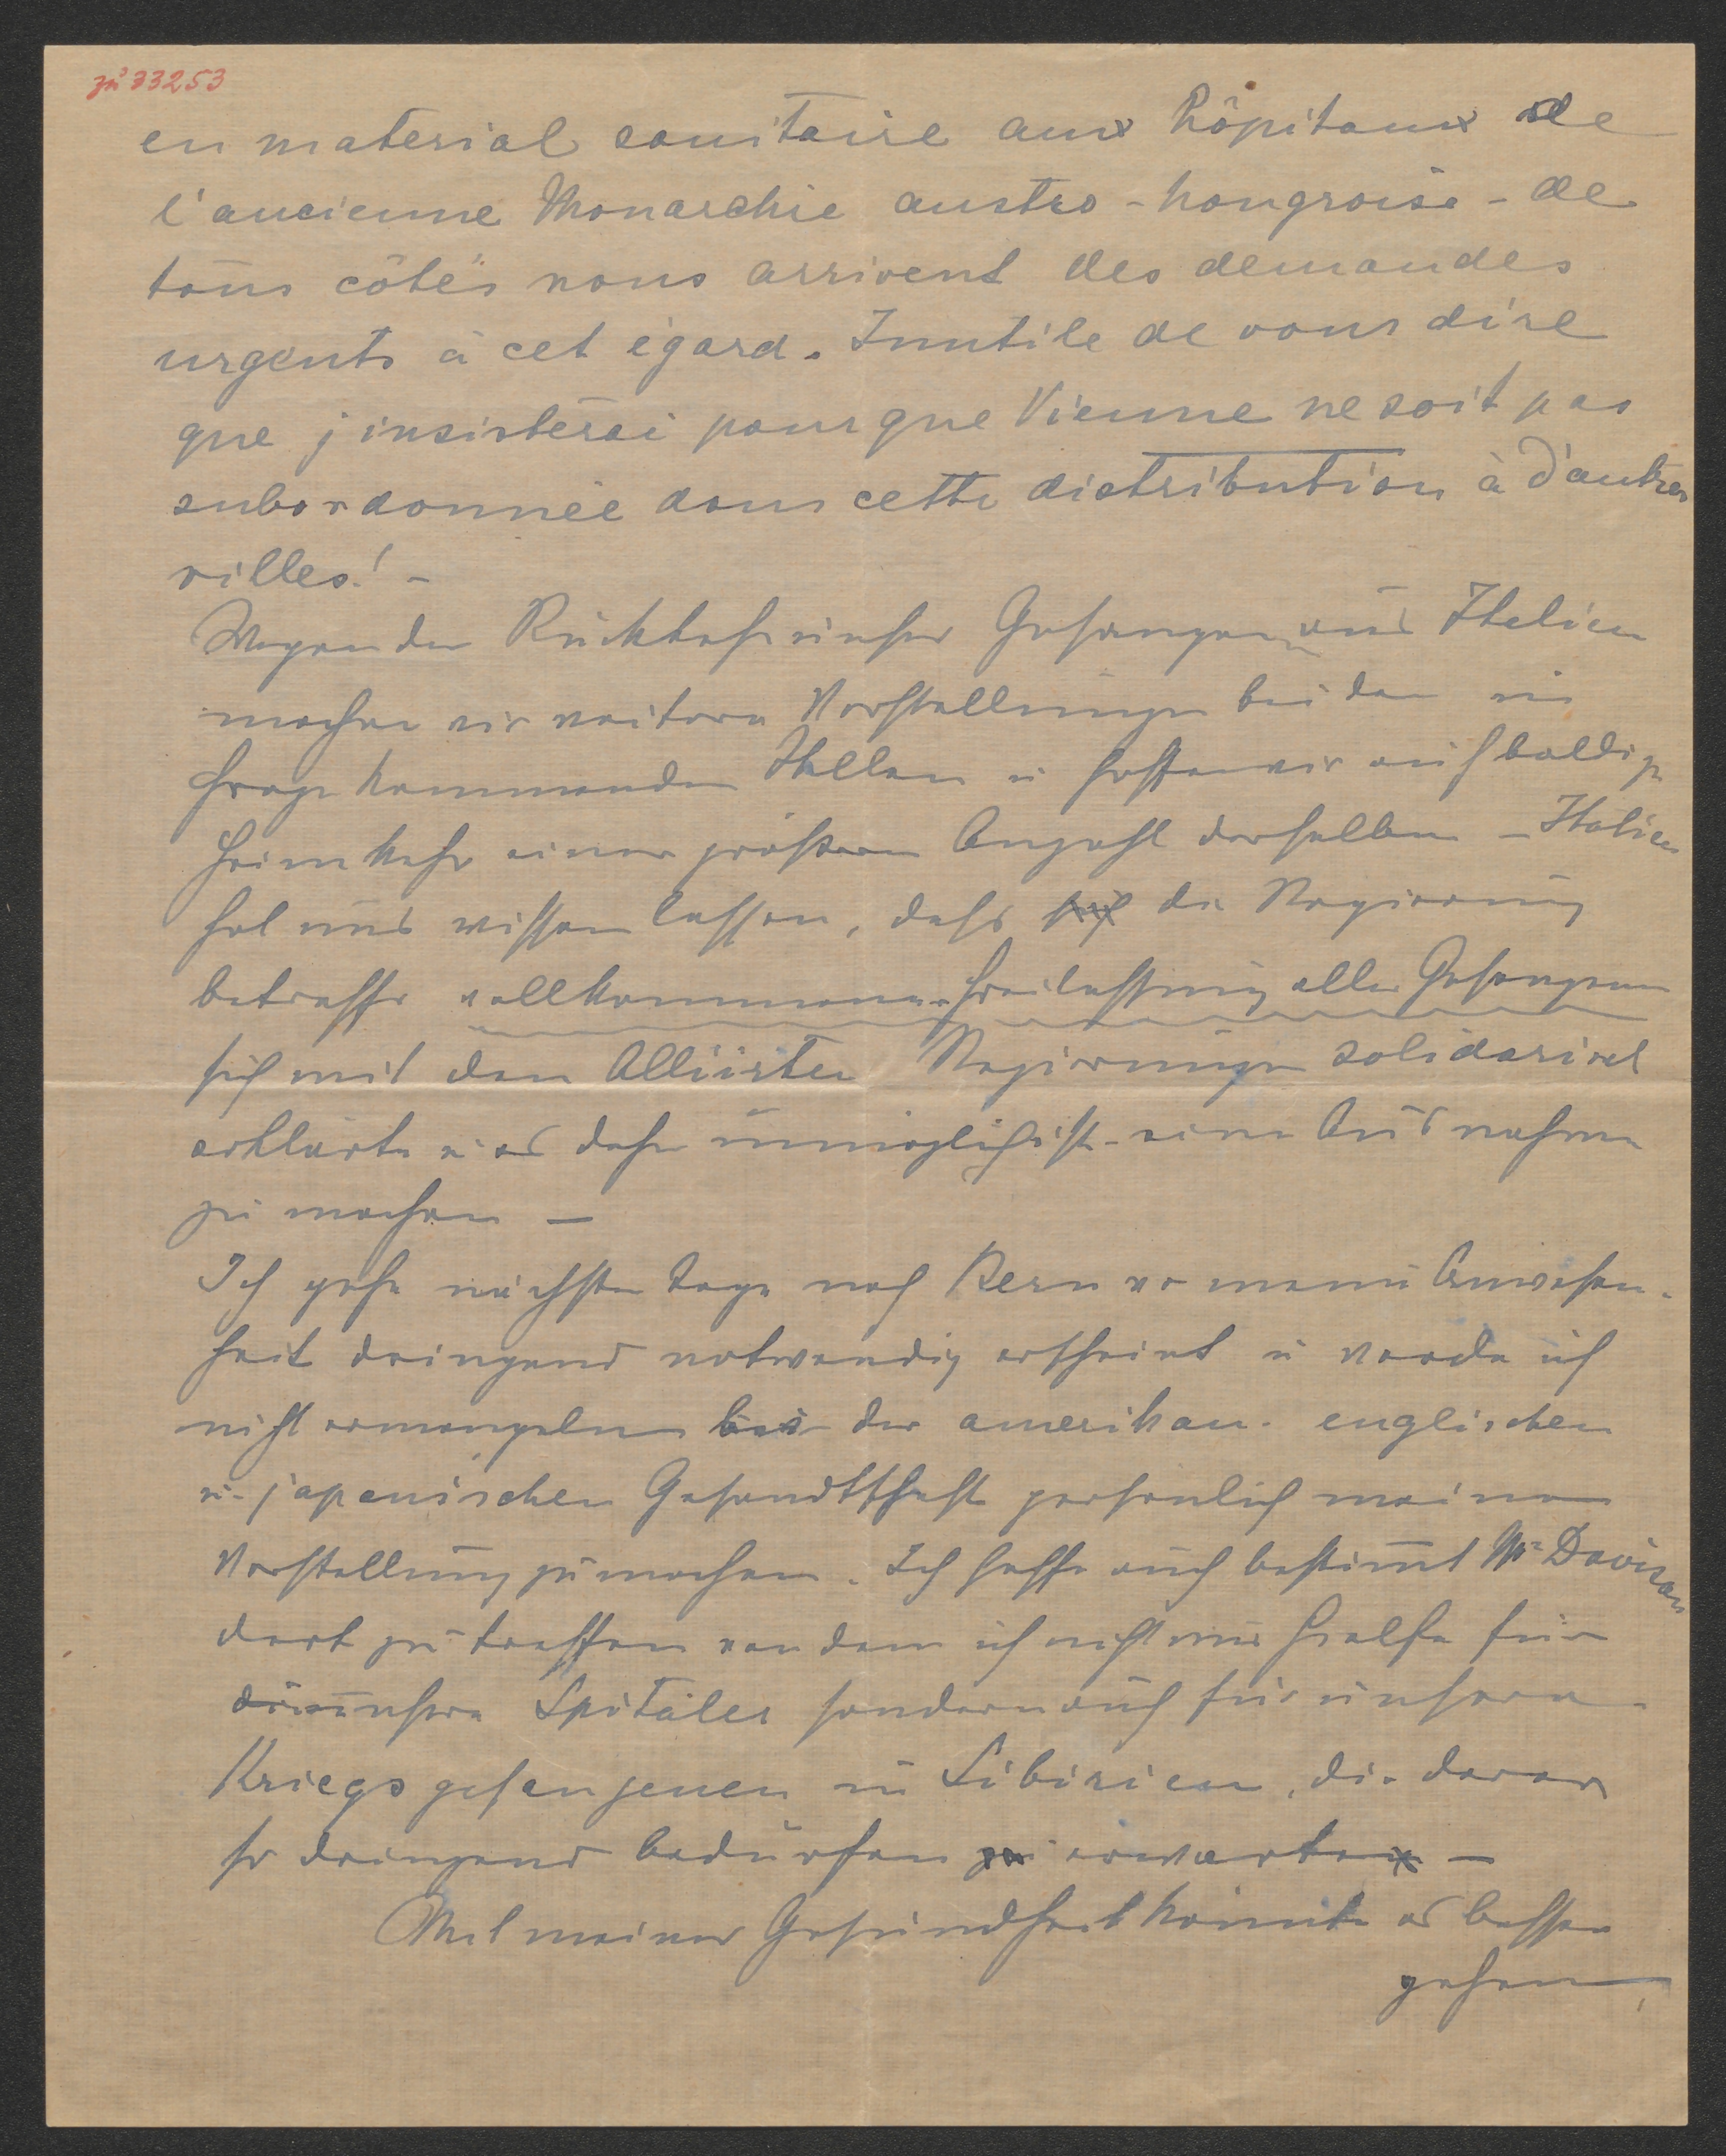 zu 33253
en material sanitaire aux hôpitaux de
l'ancienne Monarchie austro-hongroise - de
tous côtés nous arrivent des demandes
urgents à cet égard. Inutile de vous dire
que j insisterai pour que Vienne ne soit pas
subordonnée dans cette distribution à d'autres
villes! -
Wegen der Rückkehr unsrer Gefangenen aus Italien
machen wir weitere Vorstellungen bei den in
Frage kommenden Stellen u hoffen wir auf baldige
Heimkehr einer größeren Anzahl derselben - Italien
hat uns wissen lassen, dass sich die Regierung
betreffs vollkommener Freilassung aller Gefangenen
sich mit den Alliirten Regierungen solidarisch
erklärte u es daher unmöglich ist - eine Ausnahme
zu machen -
Ich gehe nächste Tage nach Bern wo meine Anwesen-
heit dringend notwendig erscheint u werde ich
nicht ermangeln bei der amerikan. englischen
u. japanischen Gesandtschaft persönlich meine
Vorstellung zu machen. Ich hoffe auch bestimmt Mr Davison
dort zu treffen von dem ich nicht nur Hilfe für
unsere Spitäler sondern auch für unsere
Kriegsgefangenen in Sibirien, die deren
so dringend bedürfen zu erwarten -
Mit meiner Gesundheit könnte es besser
gehen,